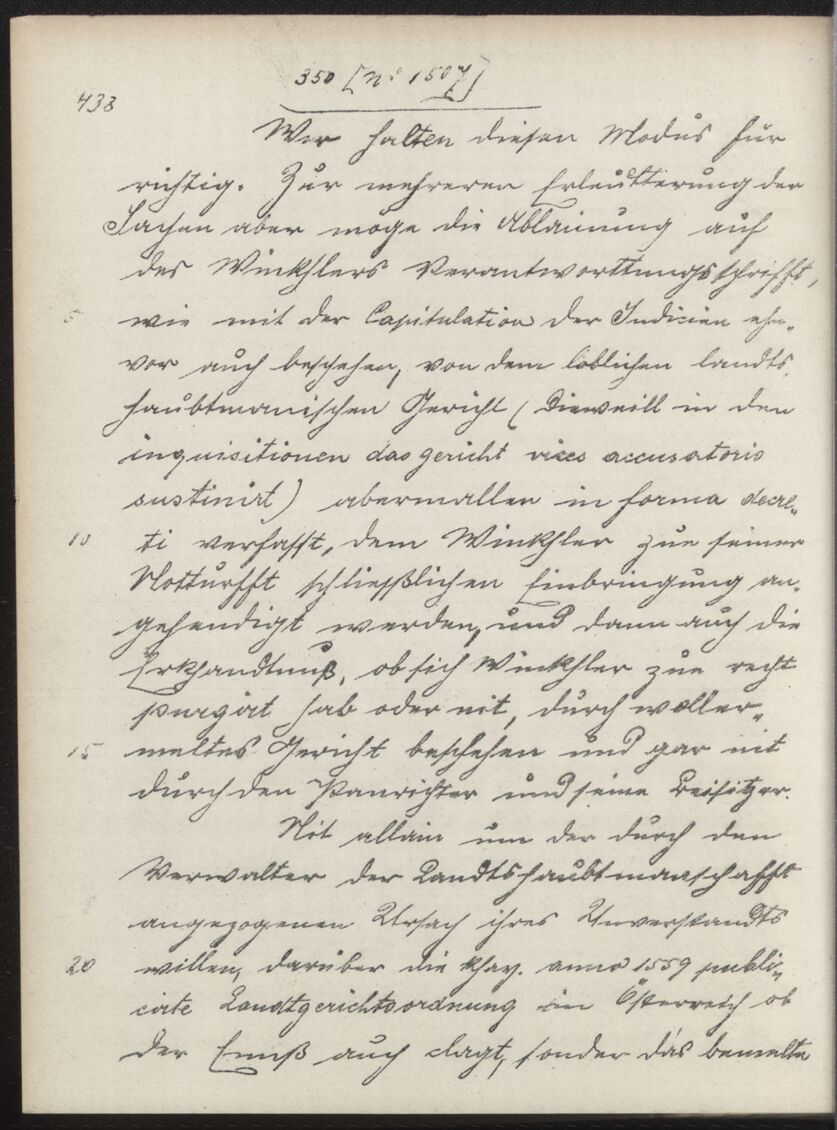 350 [No 1507]
438
Wir halten diesen Modus für
richtig. Zur mehreren Erleutterung der
Sachen aber möge die Ablainung auf
des Winkhlers Verantworttungsschrifft,
5 wie mit der Capitulation der Indicien ehe„
vor auch beschehen, von dem loblichen landts
haubtmanischen Gericht (Dieweill in den
inquisitionen das gericht vices accusatoris
sustinirt) abermallen in forma decre„
10 ti verfasst, dem Winkhler zue seiner
Notturfft schliesslichen Einbringung ein„
gehendigt werden, und dann auch die
Erkhandtnuß, ob sich Winkhler zue recht
purgirt hab oder nit, durch woller„
15 meltes Gericht beschehen und gar nit
durch den Panrichter und seine Beisitzer.
Nit allain um der durch den
Verwalter der Landtshaubtmanschafft
angezogenen Ursach ihres Unverstandts
20 willen, darüber die khay. anno 1559 publi„
cirte Landtgerichtsordnung in Österreich ob
der Ennß auch clagt, sonder das bemelte